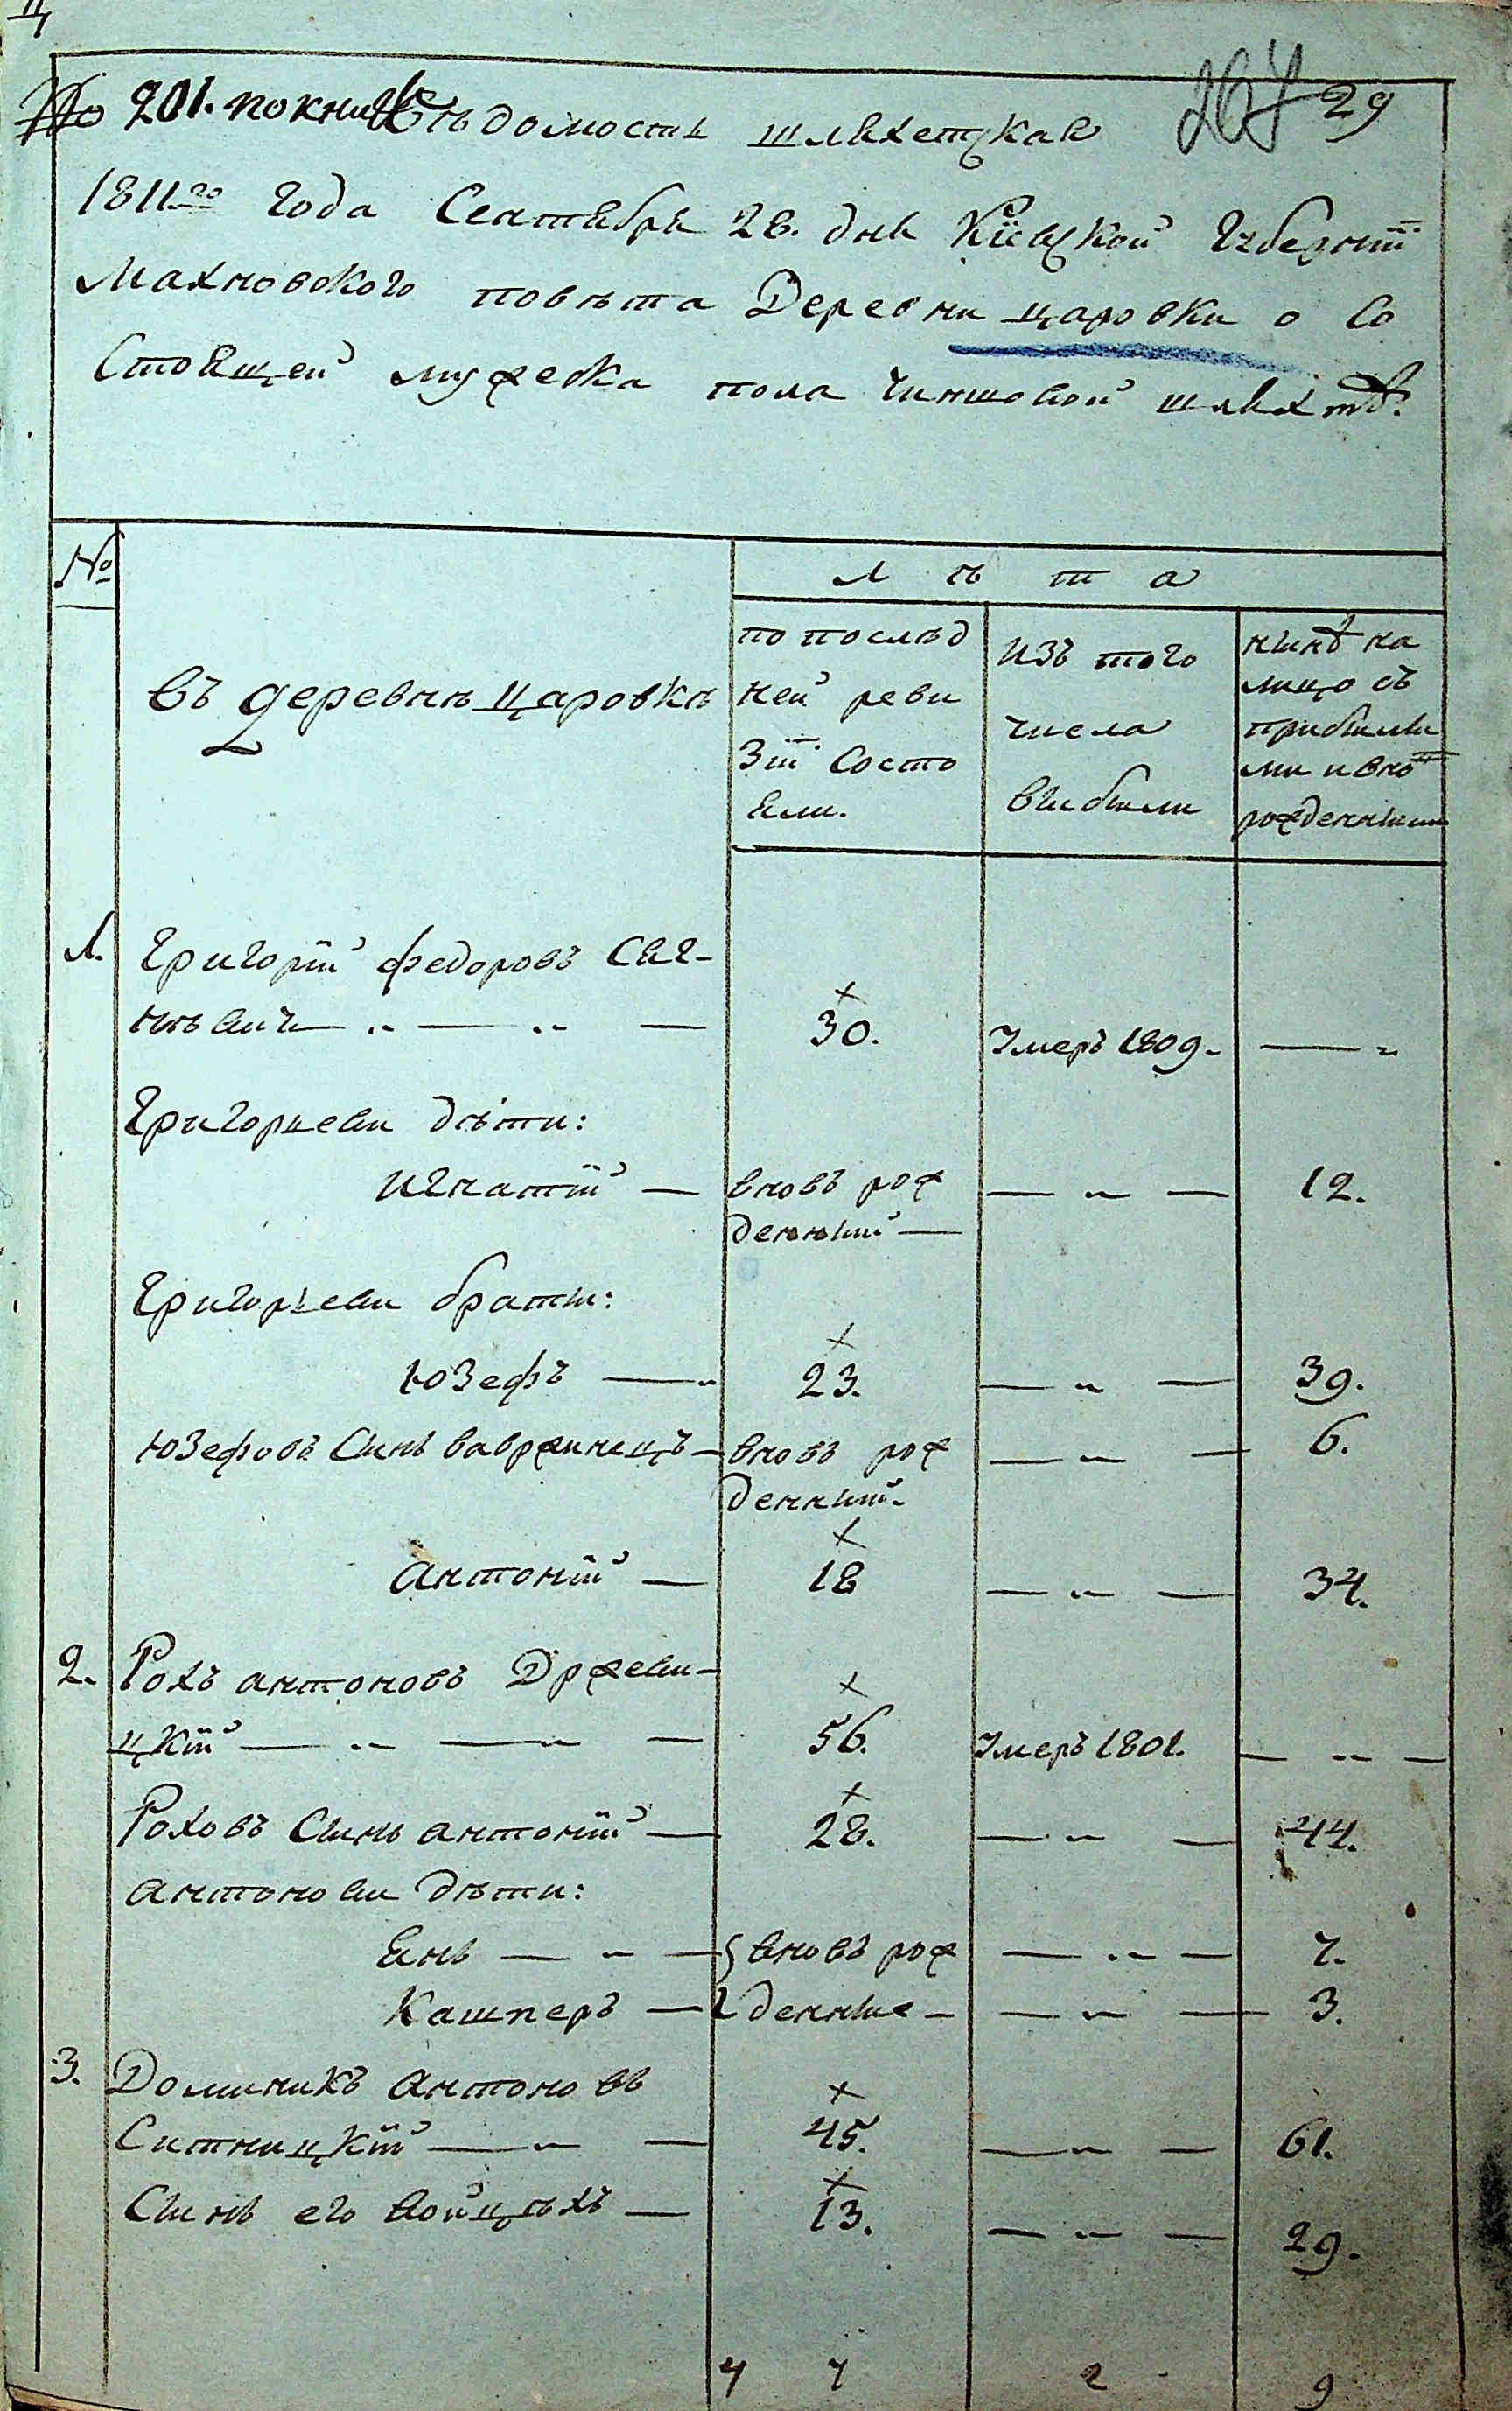 № 201. по книге вѣдомость шляхетская 29
1811го года Сентября 28. дня Кіевской Губернїи
Махновского повѣта Деревни Царовки о Со
Стоящей мужеска пола Чиншовой шляхтѣ.
№ Лѣта
въ деревнѣ Царовкѣ
по послѣд
ней реви
Зїи Состо
яли.
изъ того
числа
выбыли
нынѣ на
лицо съ
прибылы
ми и внов
рожденными
1. Григорїй Федоровъ Саг-
нѣвич 30. Умеръ 1809.
Григорьевы дѣти:
Игнатїй вновь рож 12.
денный
Григорьевы братьи:
Юзефъ 23. 39.
Юзефовъ Сынъ Вавржинецъ вновь рож 6.
денный
Антонїй 18 34.
2. Рохъ Антоновъ Држеви-
цкїй 56. Умеръ 1801.
Роховъ Сынъ Антонїй 28. 44.
Антоновы дѣти:
Янъ вновь рож 7.
Кашперъ денные 3.
3. Доминикъ Антоновъ
Ситницкїй 45. 61.
Сынъ его Войцѣхъ 13. 29.
7 2 9